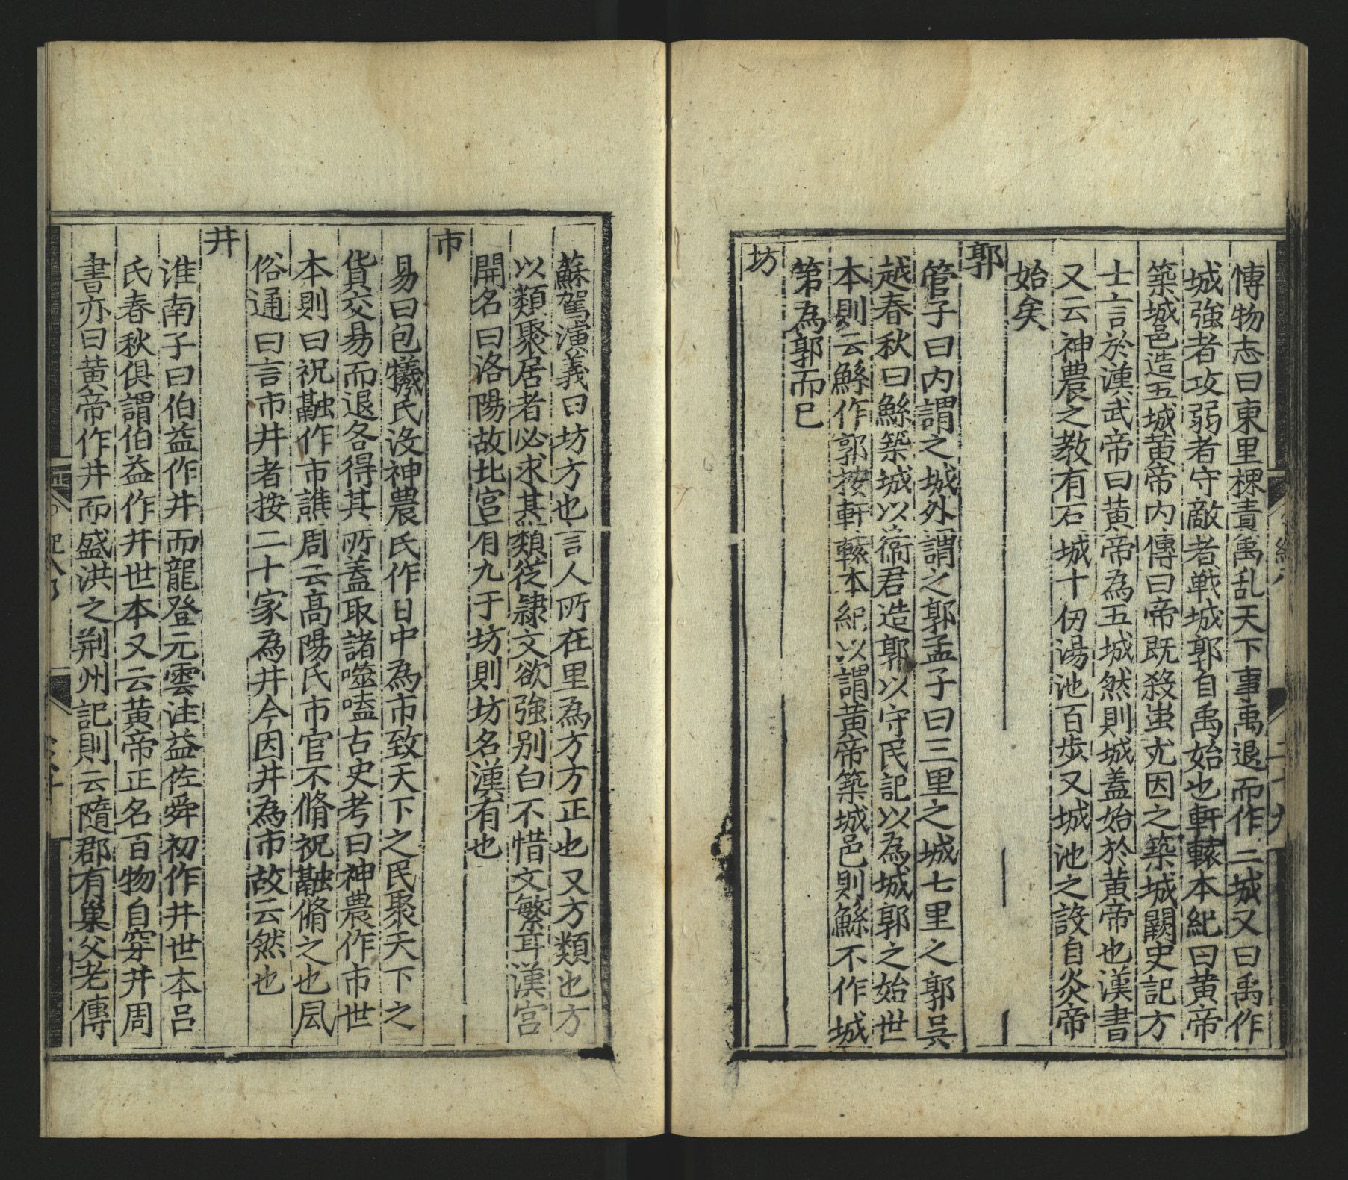 慱物志曰東里槐責禹乱天下事禹退而作三城又曰禹作
城強者攻弱者守敵者戦城郭自禹始也軒轅本紀曰黄帝
築城邑造五城黄帝内傳曰帝既殺蚩尤因之築城闕史記方
士言於漢武帝曰黄帝為五城然則城盖始於黄帝也漢書
又云神農之教有石城十仞湯池百歩又城池之設自炎帝
始矣
郭
管子曰内謂之城外謂之郭孟子曰三里之城七里之郭吳
越春秋曰鯀築城以衞君造郭以守民記以為城郭之始世
本則云鯀作郭按軒轅本紀以謂黄帝築城邑則鯀不作城
第為郭而已
坊
蘇鶚演義曰坊方也言人所在里為方方正也又方類也方
以類聚居者必求其類從隷文欲強别白不惜文繁耳漢宫
闕名曰洛陽故北宫有九子坊則坊名漢有也
市
易曰包犧氏没神農氏作日中為市致天下之民聚天下之
貨交易而退各得其所盖取諸噬嗑古史考曰神農作市世
本則曰祝融作市譙周云高陽氏市官不脩祝融脩之也風
俗通曰言市井者按二十家為井今因井為市故云然也
井
淮南子曰伯益作井而龍登元雲注益佐舜初作井世本吕
氏春秋俱謂伯益作井世本又云黄帝正名百物自穿井周
書亦曰黄帝作井而盛洪之荆州記則云隨郡有巢父老傳